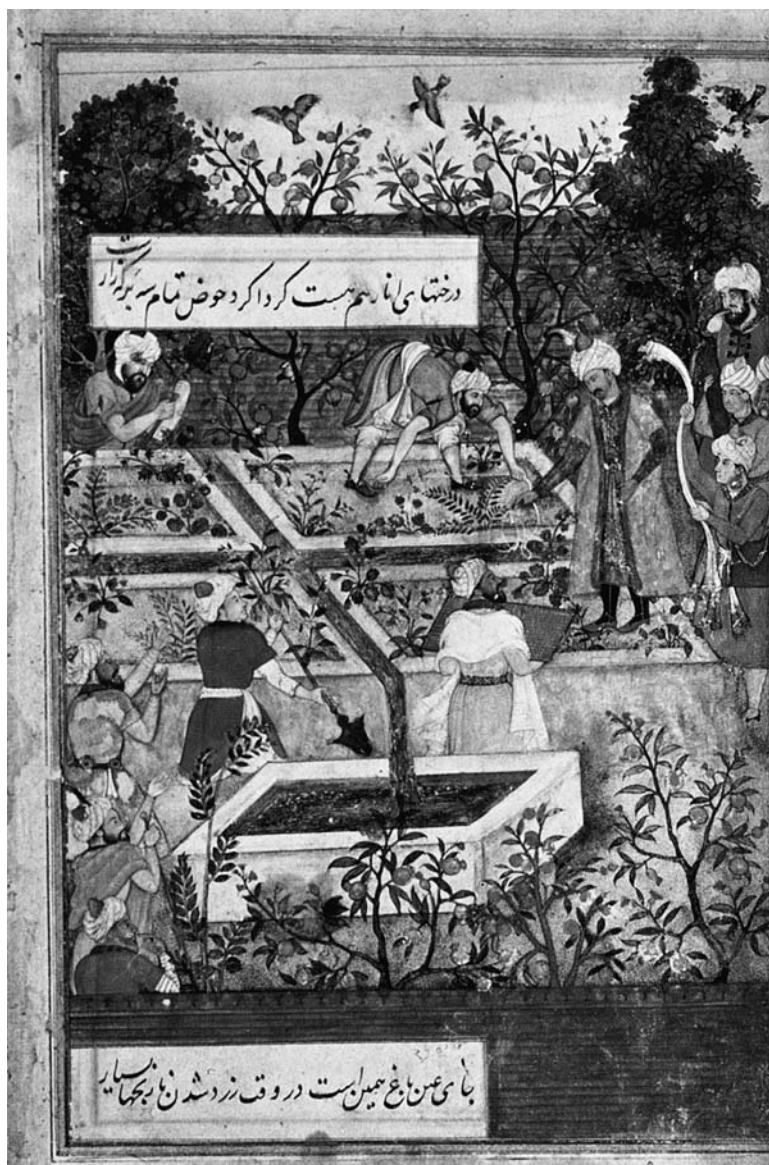 درختهای انار هم هست گرداگرد حوض تمام سه برگه زار است
جای عین باغ همین است در وقت زرد شدن نارنجها بسیار